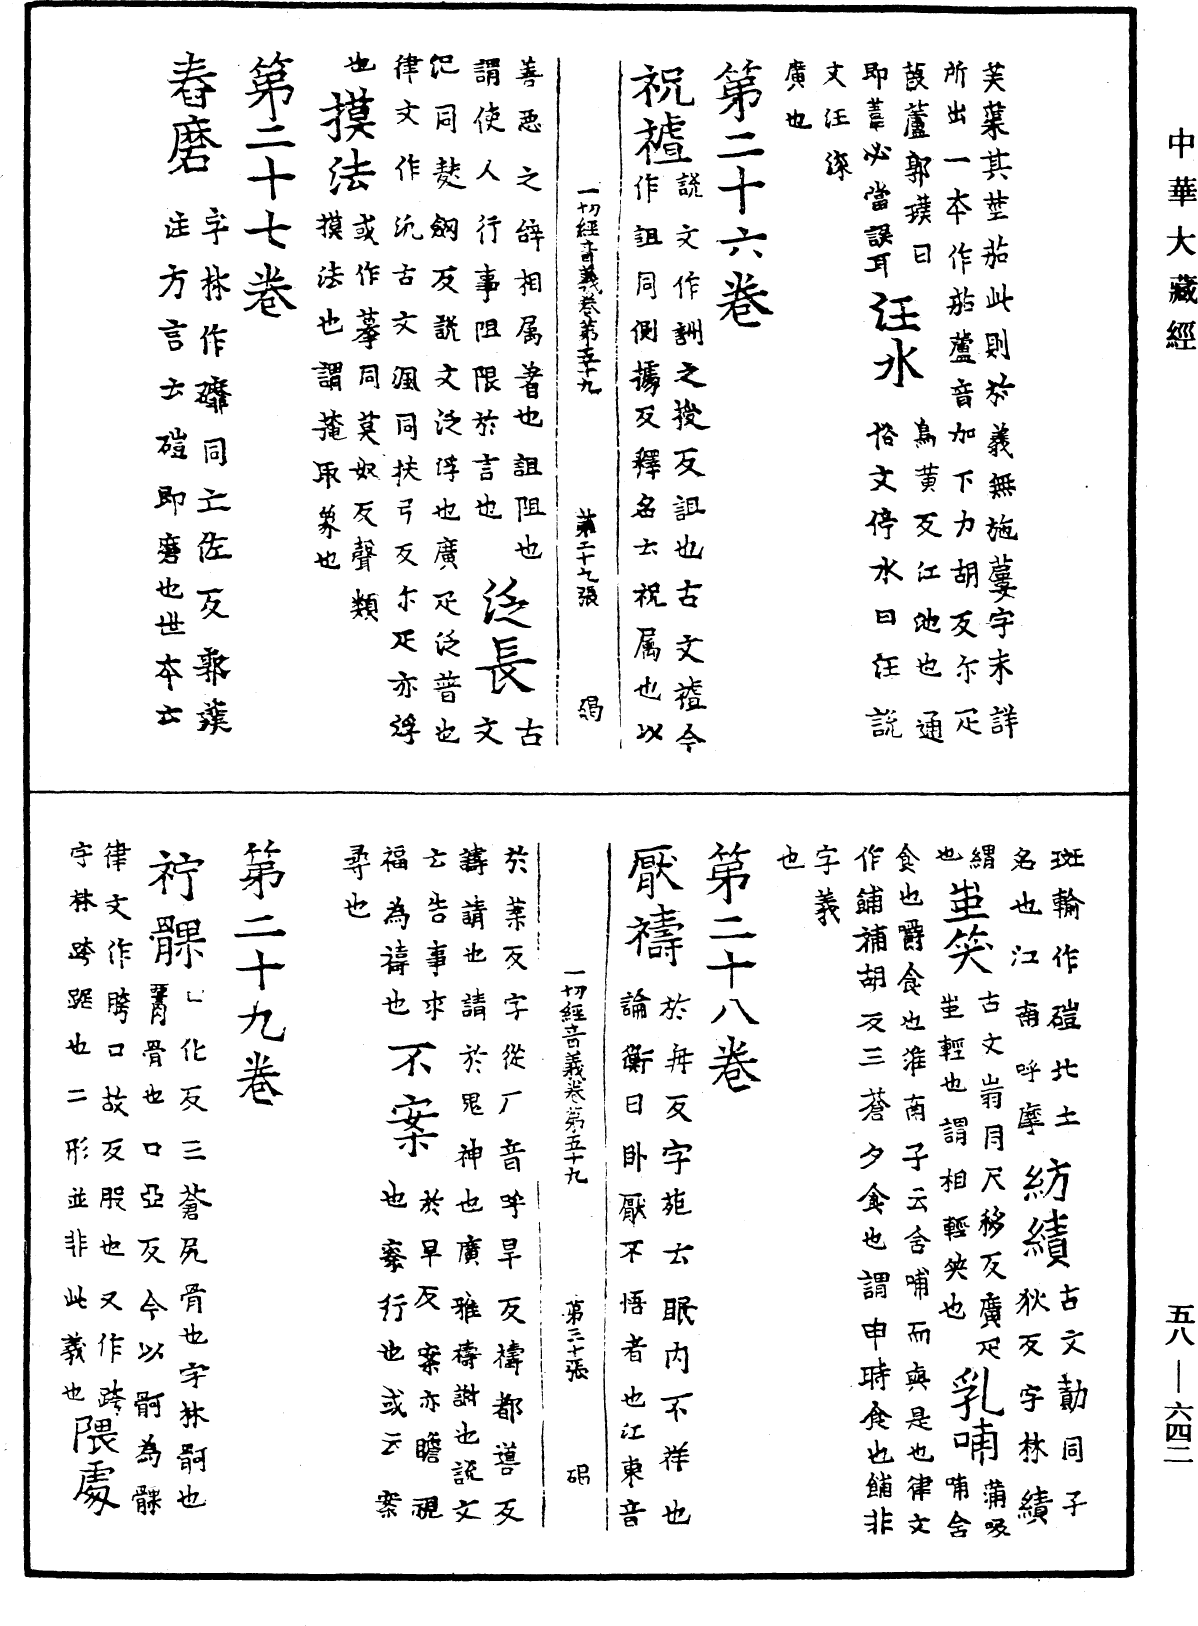 中華大藏經
芙蕖其莖茄此則於義無施蔓字未詳
所出一本作茄蘆音加下力胡反尒疋
葭蘆郭璞曰
即葦必當誤耳
汪水
烏黃反江池也通
俗文停水曰汪說
文汪深
廣也
第二十六卷
祝禮
說文作詶之授反詛也古文禮今
作詛同側據反釋名云祝属也以
一切經音義卷第五十九 第二十九張 碣
善惡之辝相属著也詛阻也
謂使人行事阻限於言也
泛長
古文
氾同敷劒反說文泛浮也廣疋泛普也
律文作汎古文渢同扶弓反尒疋亦浮
也
摸法
或作摹同莫奴反聲類
摸法也謂掩取象也
第二十七卷
舂磨
字林作䃺同亡佐反郭璞
注方言云磑即磨也世本云
班輸作磑北土
名也江南呼摩
紡績
古文勣同子
狄反字林績
緝也
蚩笑
古文㱯同尺移反廣疋
蚩輕也謂相輕㗛也
乳哺
蒲故
哺含
食也爵食也淮南子云含哺而與是也律文
作餔補胡反三蒼夕食也謂申時食也餔非
字義
也
第二十八卷
厭禱
於冉反字苑云眠内不祥也
論衡曰卧厭不悟者也江東音
一切經音義卷第五十九 第三十張 碣
於葉反字從厂音呼旱反禱都導反
請也請於鬼神也廣雅禱謝也說文
云告事求
福為禱也
不案
於旱反案亦瞻視
也察行也或云案
尋也
第二十九卷
髁
口化反三蒼尻骨也字林髂也
骨也口亞反今以髂為髁
律文作胯口故反股也又作跨
字林跨踞也二形並非此義也
隈處
五八—六四二